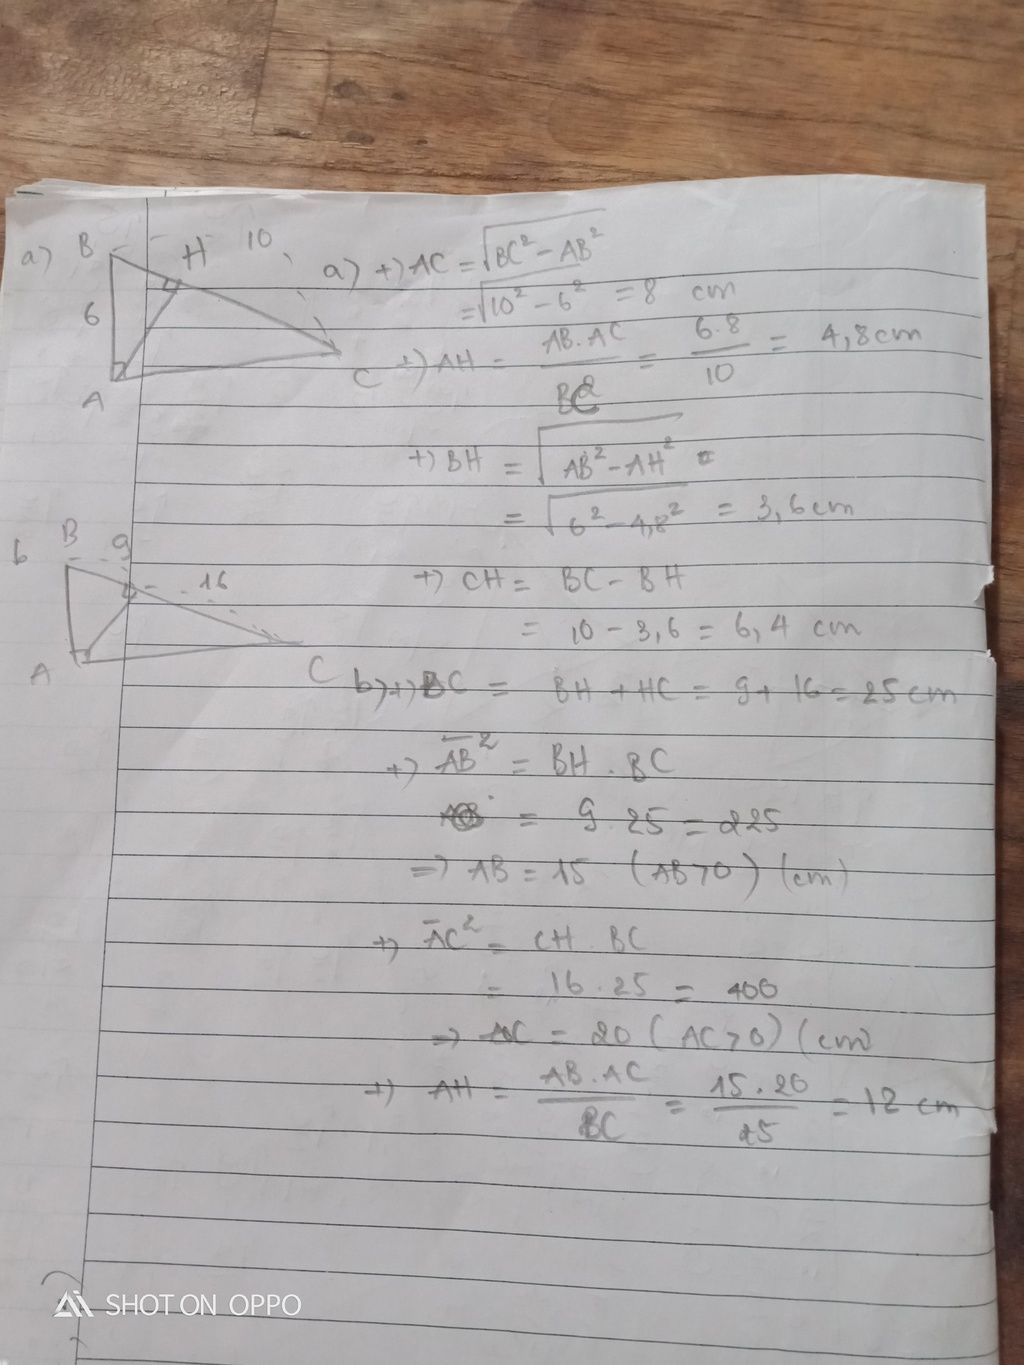 a) B H 10
6
A C
a) +) AC = √BC² - AB²
= √10² - 6² = 8 cm
+) AH = AB.AC / BC = 6.8 / 10 = 4,8 cm
+) BH = √AB² - AH² =
= √6² - 4,8² = 3,6 cm
b B 9 16
A C
+) CH = BC - BH
= 10 - 3,6 = 6,4 cm
b) +) BC = BH + HC = 9 + 16 = 25 cm
+) AB² = BH . BC
= 9 . 25 = 225
=> AB = 15 (AB>0) (cm)
+) AC² = CH . BC
= 16 . 25 = 400
=> AC = 20 (AC>0) (cm)
+) AH = AB.AC / BC = 15.20 / 25 = 12 cm
SHOT ON OPPO